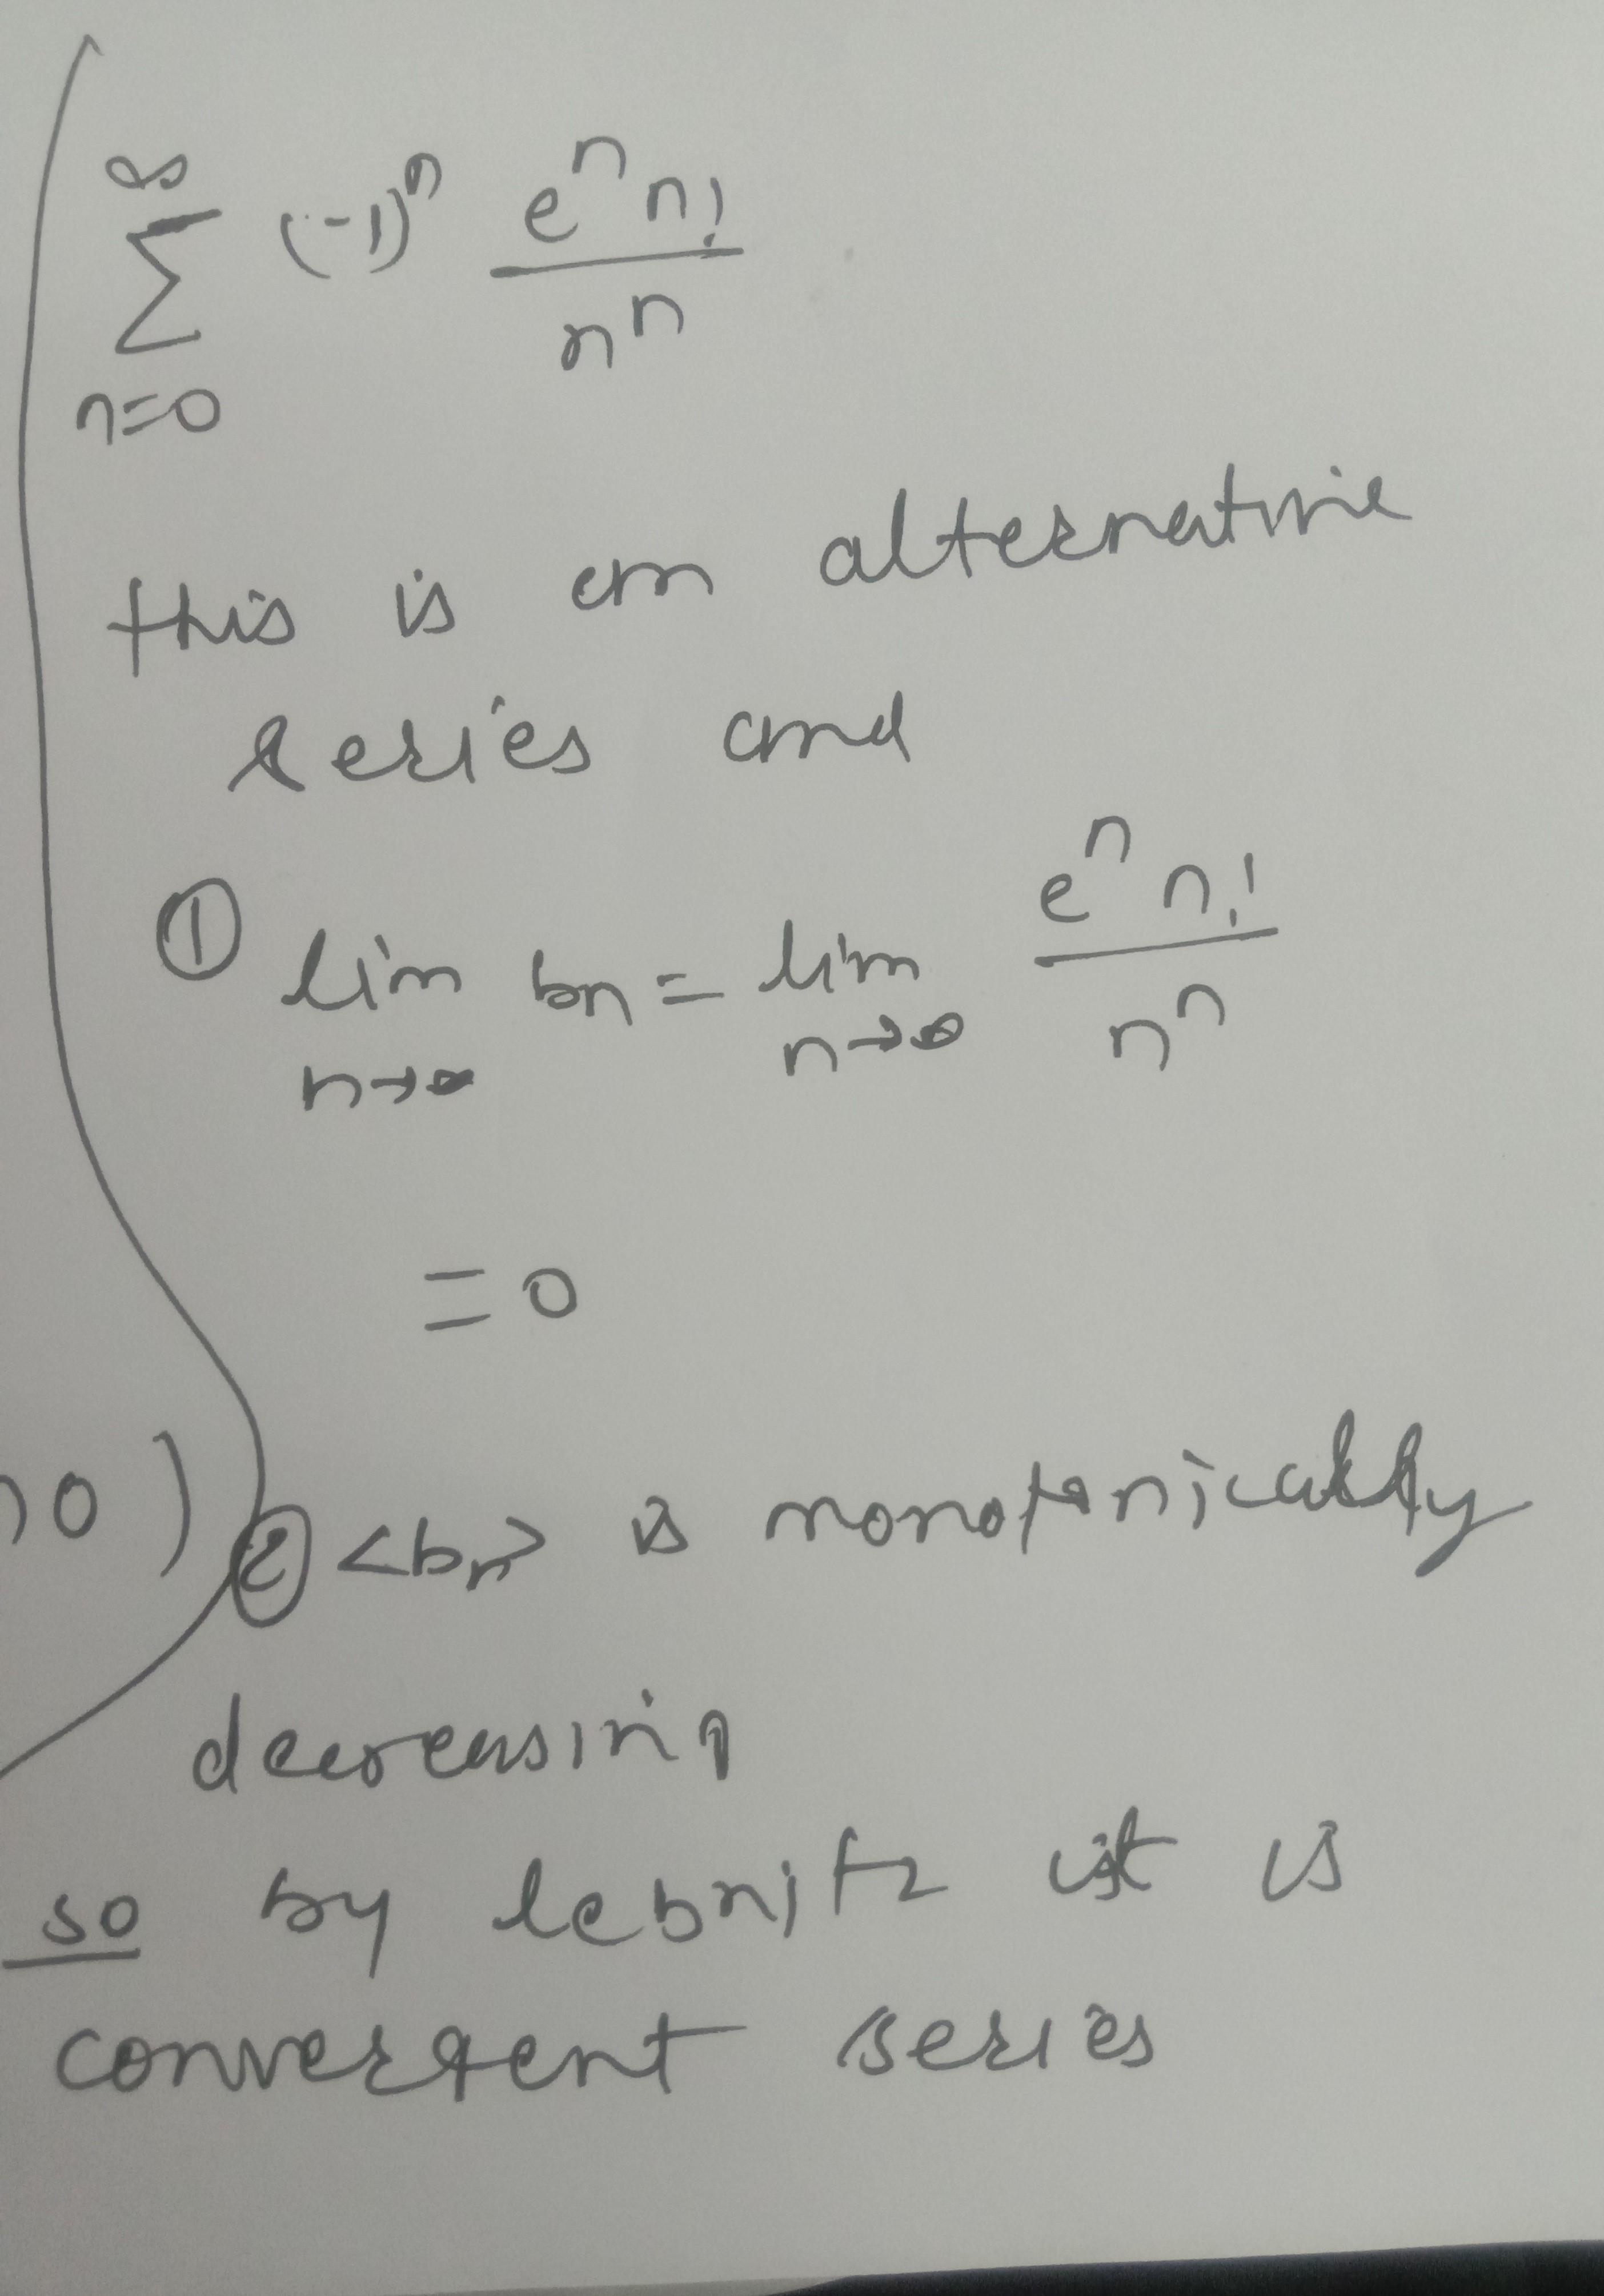 ∞
∑ (-1)^n e^n n! / n^n
n=0
this is an alternative
series and
① lim n→∞ bn = lim n→∞ e^n n! / n^n
= 0
0)
② <bn> is monotonically
decreasing
so by lebnitz it is
convergent series